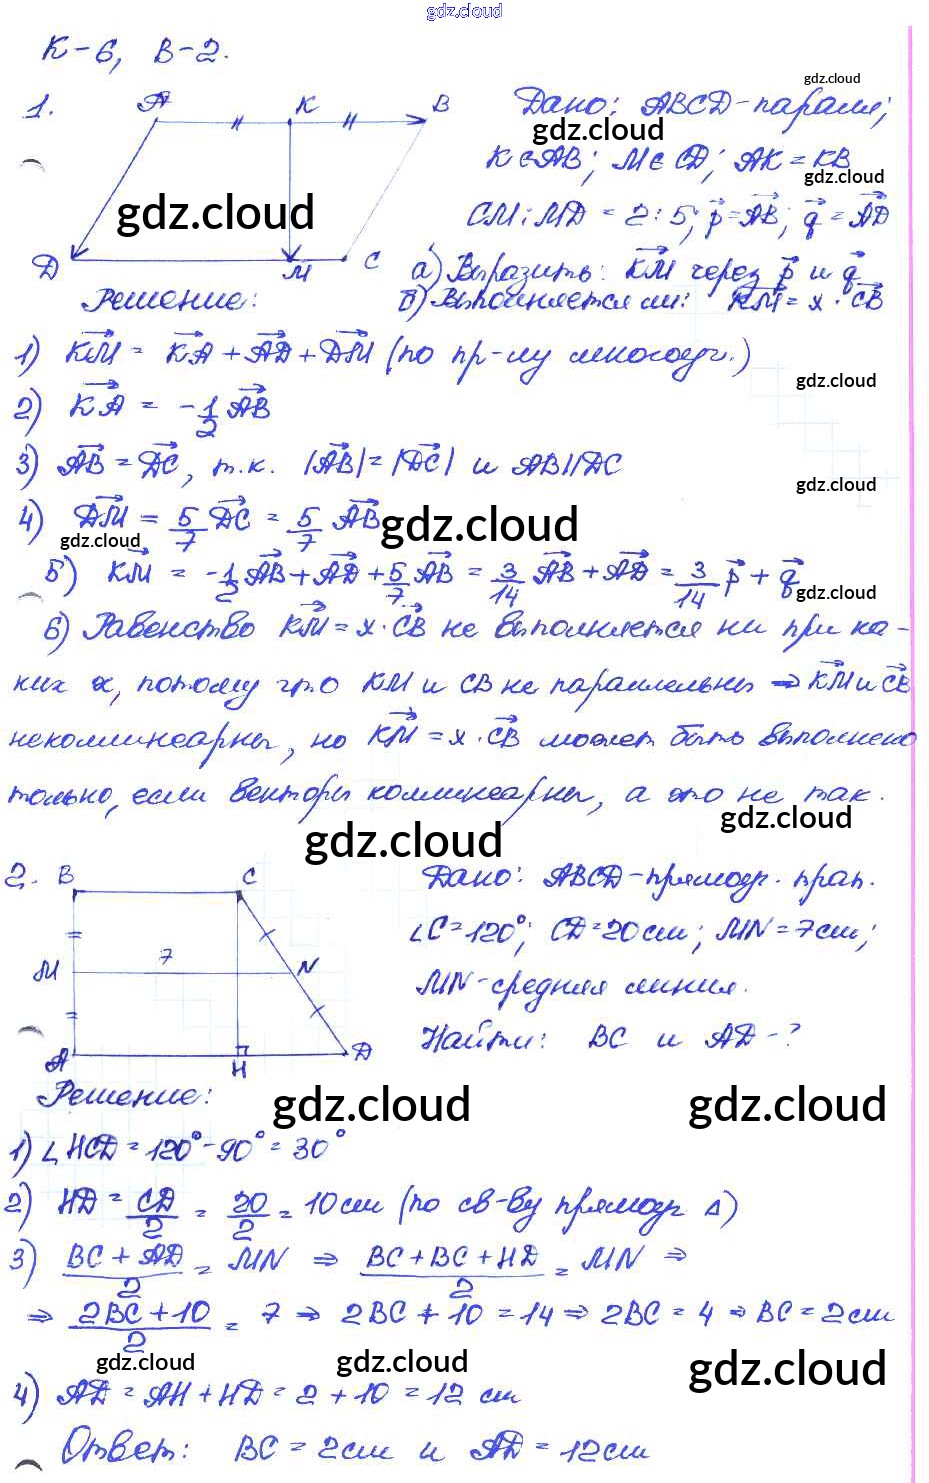 gdz.cloud
К-6, В-2.
gdz.cloud
1. A K B Дано: ABCD-паралл;
gdz.cloud
K∈AB; M∈CD; AK=KB
gdz.cloud
gdz.cloud
CM:MD = 2:5; p⃗=AB⃗; q⃗=AD⃗
D M C а) Выразить: KM⃗ через p⃗ и q⃗
Решение: в) Выполняется ли: KM⃗ = x·CB⃗
1) KM⃗ = KA⃗ + AD⃗ + DM⃗ (по пр-лу многоуг.)
gdz.cloud
2) KA⃗ = -1/2 AB⃗
3) AB⃗ = DC⃗, т.к. |AB⃗|=|DC⃗| и AB||DC
gdz.cloud
4) DM⃗ = 5/7 DC⃗ = 5/7 AB⃗
gdz.cloud
gdz.cloud
5) KM⃗ = -1/2 AB⃗ + AD⃗ + 5/7 AB⃗ = 3/14 AB⃗ + AD⃗ = 3/14 p⃗ + q⃗
gdz.cloud
6) Равенство KM⃗ = x·CB⃗ не выполняется ни при ка-
ких x, потому что KM и CB не параллельны ⇒ KM⃗ и CB⃗
неколлинеарны, но KM⃗ = x·CB⃗ может быть выполнено
только, если векторы коллинеарны, а это не так.
gdz.cloud
gdz.cloud
2. B C Дано: ABCD-прямоуг. трап.
∠C=120°; CD=20см; MN=7см;
M 7 N MN-средняя линия.
Найти: BC и AD-?
A H D
Решение:
gdz.cloud
gdz.cloud
1) ∠HCD = 120°-90° = 30°
2) HD = CD/2 = 20/2 = 10см (по св-ву прямоуг Δ)
3) (BC + AD)/2 = MN ⇒ (BC+BC+HD)/2 = MN ⇒
⇒ (2BC+10)/2 = 7 ⇒ 2BC + 10 = 14 ⇒ 2BC = 4 ⇒ BC = 2см
gdz.cloud
gdz.cloud
gdz.cloud
4) AD = AH + HD = 2 + 10 = 12 см
Ответ: BC = 2см и AD = 12см